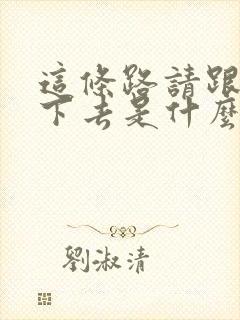 這條路請跟
下去是什麼
劉淑清